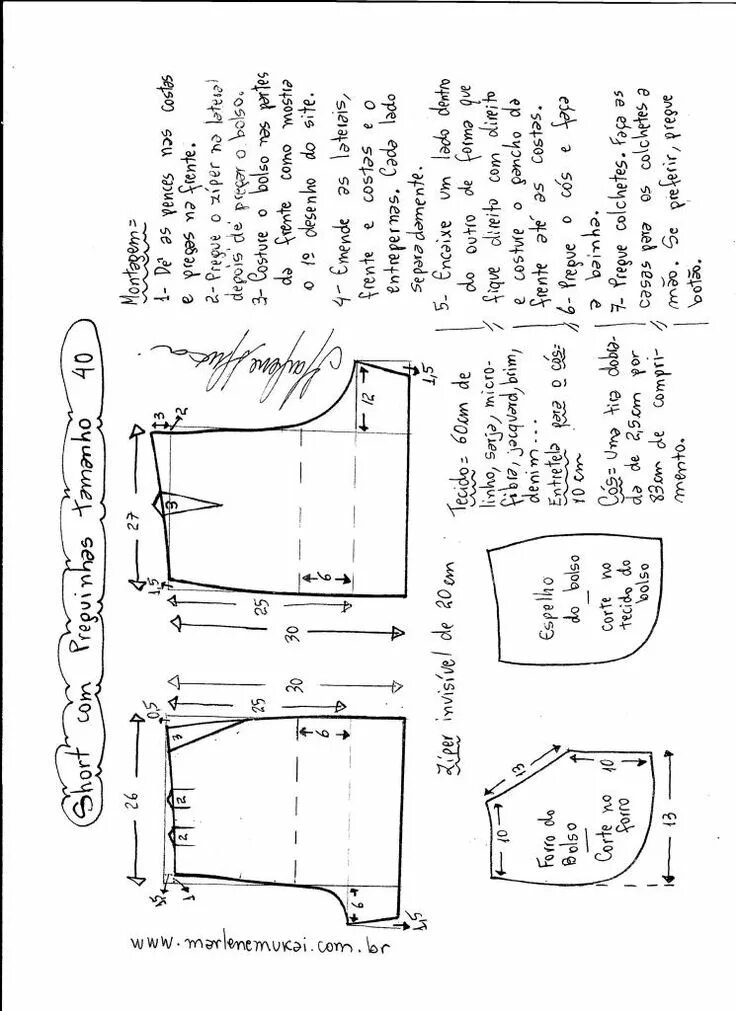 Short com Preguinhas tamanho 40
26
0,5
3
2
2
1,5
1
25
30
6
6
1,5
27
1,5
3
3
2
25
30
6
12
1,5
www.marlenemukai.com.br
Zíper invisível de 20cm
10
13
10
Forro do
Bolso
Corte no
forro
13
Espelho
do bolso
corte no
tecido do
bolso
Tecido = 60cm de
linho, sarja, micro-
fibra, jacquard, brim,
denim....
Entretela para o cós=
10 cm
Cós= Uma tira dobra-
da de 2,5cm por
83cm de compri-
mento.
Montagem=
1- Dê as pences nas costas
e pregas na frente.
2- Pregue o zíper na lateral
depois de pregar o bolso.
3- Costure o bolso nas partes
da frente como mostra
o 1º desenho do site.
4- Emende as laterais,
frente e costas e o
entrepernas. Cada lado
separadamente.
5- Encaixe um lado dentro
do outro de forma que
fique direito com direito
e costure o gancho da
frente até as costas.
6- Pregue o cós e faça
a bainha.
7- Pregue colchetes. Faça as
casas para os colchetes a
mão. Se preferir, pregue
botão.